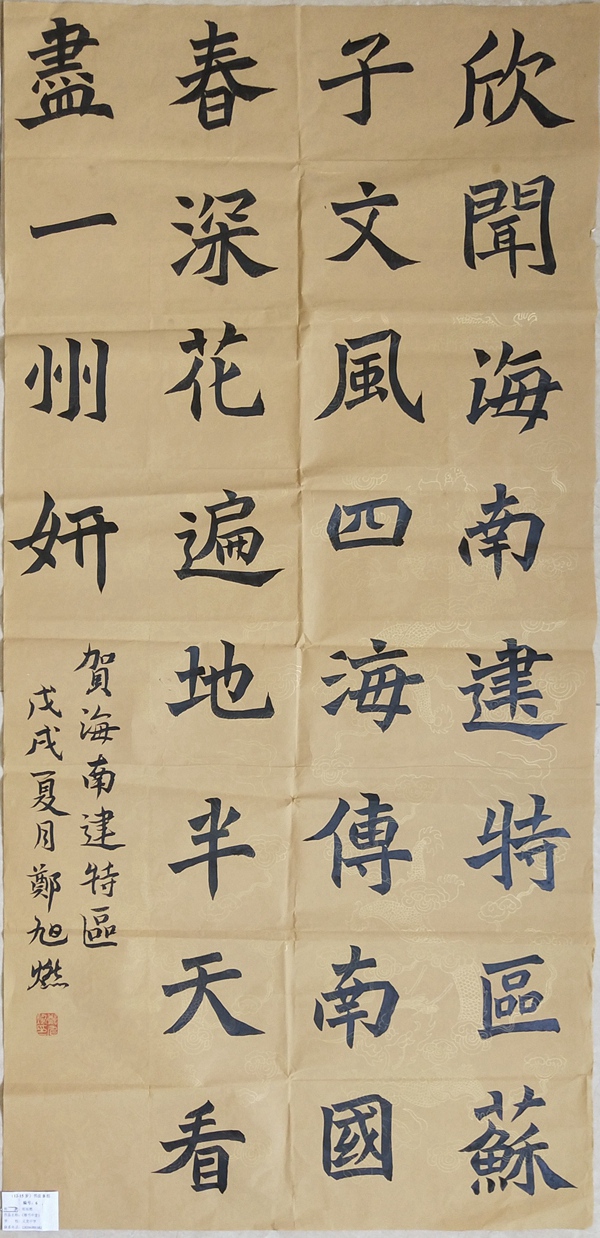 欣聞海南建特區蘇
子文風四海傳南國
春深花遍地半天看
盡一州妍
賀海南建特區
戊戌夏月鄭旭燃